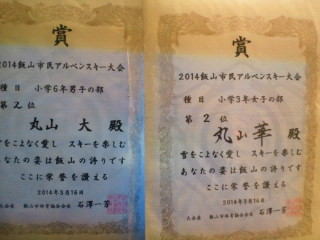 賞
2014飯山市民アルペンスキー大会
種目 小学6年男子の部
第2位
丸山 大 殿
雪をこよなく愛し スキーを楽しむ
あなたの姿は飯山の誇りです
ここに栄誉を讃える
2014年3月16日
大会長 飯山市体育協会会長 石澤一芳
賞
2014飯山市民アルペンスキー大会
種目 小学3年女子の部
第2位
丸山 華 殿
雪をこよなく愛し スキーを楽しむ
あなたの姿は飯山の誇りです
ここに栄誉を讃える
2014年3月16日
大会長 飯山市体育協会会長 石澤一芳